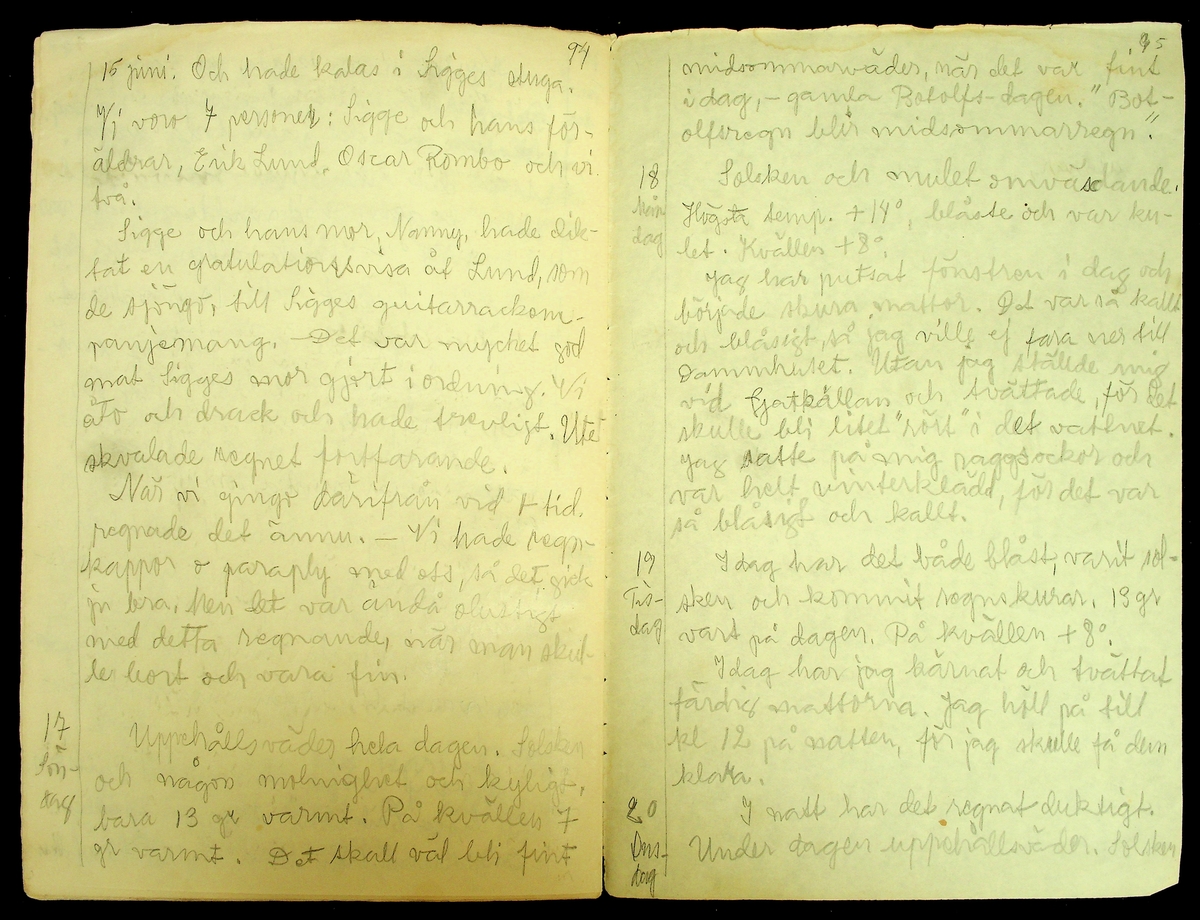 94
15 juni. Och hade kalas i Sigges stuga.
Vi voro 7 personer: Sigge och hans för-
äldrar, Erik Lund, Oscar Rombo och vi
två.
Sigge och hans mor, Nanny, hade dik-
tat en gratulationsvisa åt Lund, som
de sjöngo, till Sigges guitarrackom-
panjemang. – Det var mycket god
mat Sigges mor gjort i ordning. Vi
åto och drack och hade trevligt. Ute
skvalade regnet fortfarande.
När vi gingo därifrån vid 1-tid.
regnade det ännu. – Vi hade regn-
kappor o paraply med oss, så det gick
ju bra. Men det var ändå olustigt
med detta regnande, när man skul-
le bort och vara fin.
17
Sön-
dag
Uppehållsväder hela dagen. Solsken
och någon molnighet och kyligt,
bara 13 gr varmt. På kvällen 7
gr varmt. Det skall väl bli fint
95
midsommarväder, när det var fint
idag, – gamla Botolfs-dagen. "Bot-
olfsregn blir midsommarregn".
18
Mån
dag
Solsken och mulet omväxlande.
Högsta temp. +14°, blåste och var ky-
let. Kvällen +8°.
Jag har putsat fönstren i dag och
började skura mattor. Det var så kallt
och blåsigt, så jag ville ej fara ner till
Dammhuset. Utan jag ställde mig
vid och tvättade, för det
skulle bli litet "rört" i det vattnet.
Jag satte på mig raggsockor och
var helt vinterklädd, för det var
så blåsigt och kallt.
19
Tis-
dag
Idag har det både blåst, varit sol-
sken och kommit regnskurar. 13 gr
vart på dagen. På kvällen +8°.
Idag har jag kärnat och tvättat
färdig mattorna. Jag höll på till
kl 12 på natten, för jag skulle få dem
klara.
20
Ons-
dag
I natt har det regnat duktigt.
Under dagen uppehållsväder. Solsken